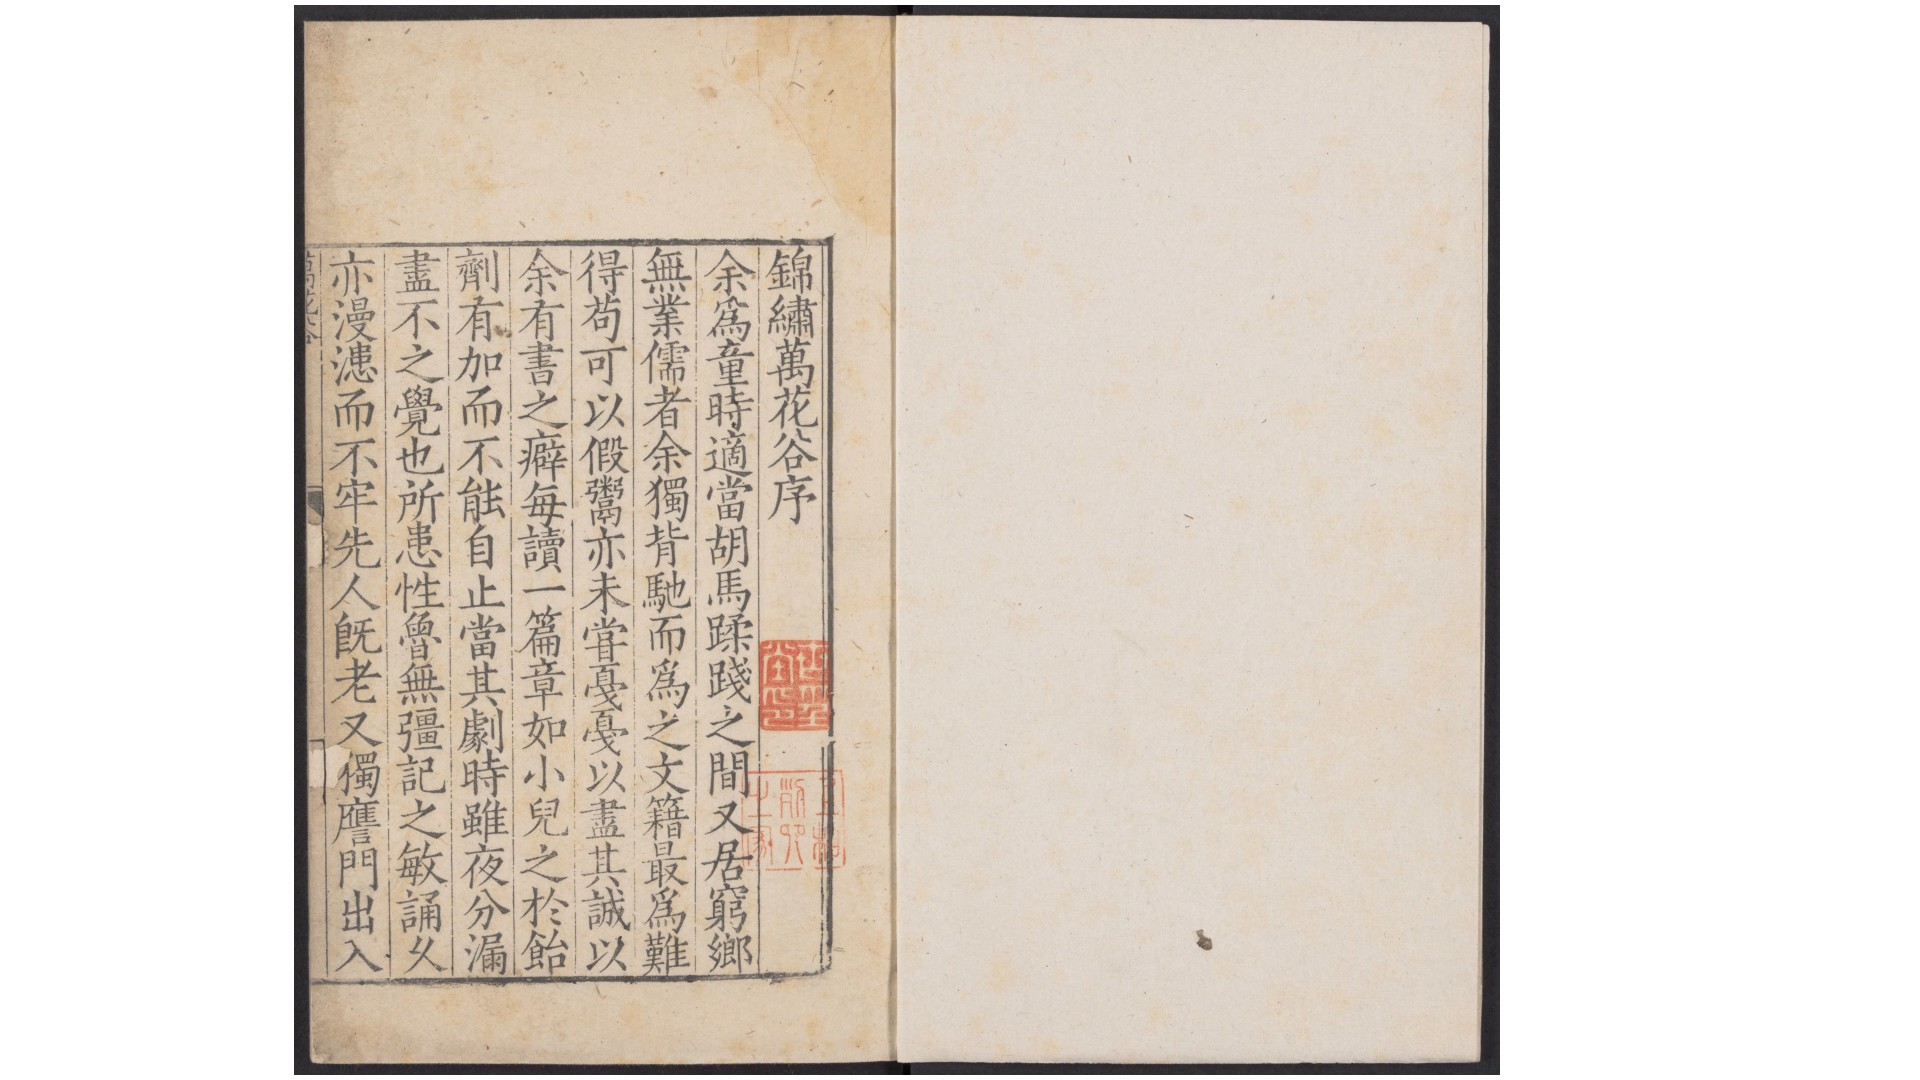 錦繡萬花谷序
余爲童時適當胡馬蹂踐之間又居窮鄉
無業儒者余獨背馳而爲之文籍最爲難
得苟可以假鬻亦未甞戞戞以盡其誠以
余有書之癖每讀一篇章如小兒之於飴
劑有加而不能自止當其劇時雖夜分漏
盡不之覺也所患性魯無彊記之敏誦乆
亦漫漶而不牢先人旣老又獨膺門出入
萬花谷